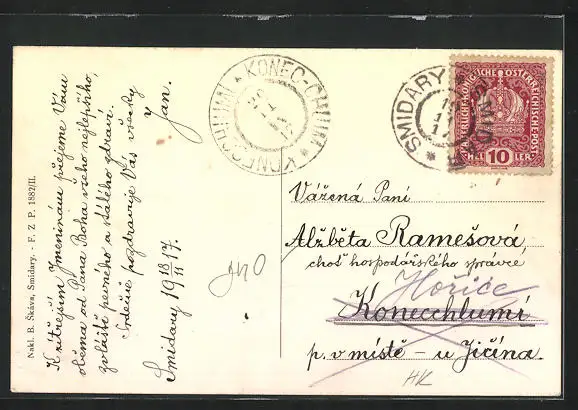 K zítřejším Jmeninám přejeme Vám
všema od Pana Boha všeho nejlepšího,
zvláště pevného a stálého zdraví.
Srdečně pozdravuje Vás všecky
Jan.
Smidary 19 18/11 17.
Nakl. B. Škáva, Smidary. - F. Z. P. 1882/II.
KONEC-CHLUMÍ * KONECCHLUMÍ *
SMIDARY *
KAISERLICHE KÖNIGLICHE ÖSTERREICHISCHE POST
HEL 10 LER
Vážená Paní
Alžběta Ramešová,
choť hospodářského správce
Hořice
Konecchlumí
p. v místě – u Jičína.
HK